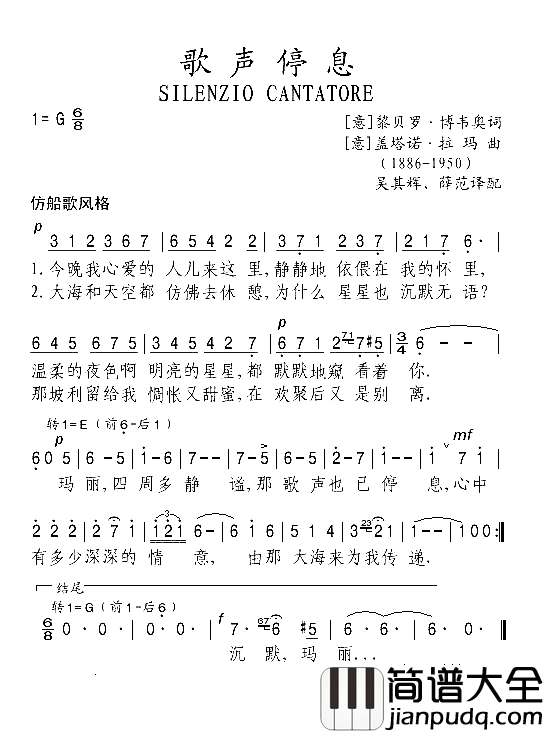 歌声停息
SILENZIO CANTATORE
1=G 6/8
[意]黎贝罗·博韦奥词
[意]盖塔诺·拉玛曲
(1886-1950)
吴其辉、薛范译配
仿船歌风格
p
312 367 | 6542 2 | 3 7 1 2 3 2 | 217 6·
1.今晚我心爱的 人儿来这里,静静地 依偎在 我的怀里,
2.大海和天空都 仿佛去休憩,为什么 星星也 沉默无语?
p
645 675 | 6 4 5 6 2 | 6 7 1 2 7 #5 | 3/4 6 -
温柔的夜色啊 明亮的星星,都 默默地窥 看着 你.
那坡利留给我 惆怅又甜蜜,在 欢聚后又 是别 离.
转1=E(前6-后1)
p mf
6 0 5 | 6-5 | 1-6 | 7-7 | 7-5 | 6 2-7 | 5-6 | 1 7 1
玛丽,四周多静 谧,那歌声也已停 息,心中
2 2 2 | 2 7 1 | 121 6- | 6- 2 | 5 1 4 | 3 5 4 | 1-- | 100:||
有多少深深的 情 意, 由那 大海来为我传 递.
结尾
转1=G(前1-后6)
f
6/8 0· 0· | 0· 0· | 7· 6 #5 | 6· 6· | 6· 0· ||
沉 默,玛 丽...
简谱大全
jianpudq.com